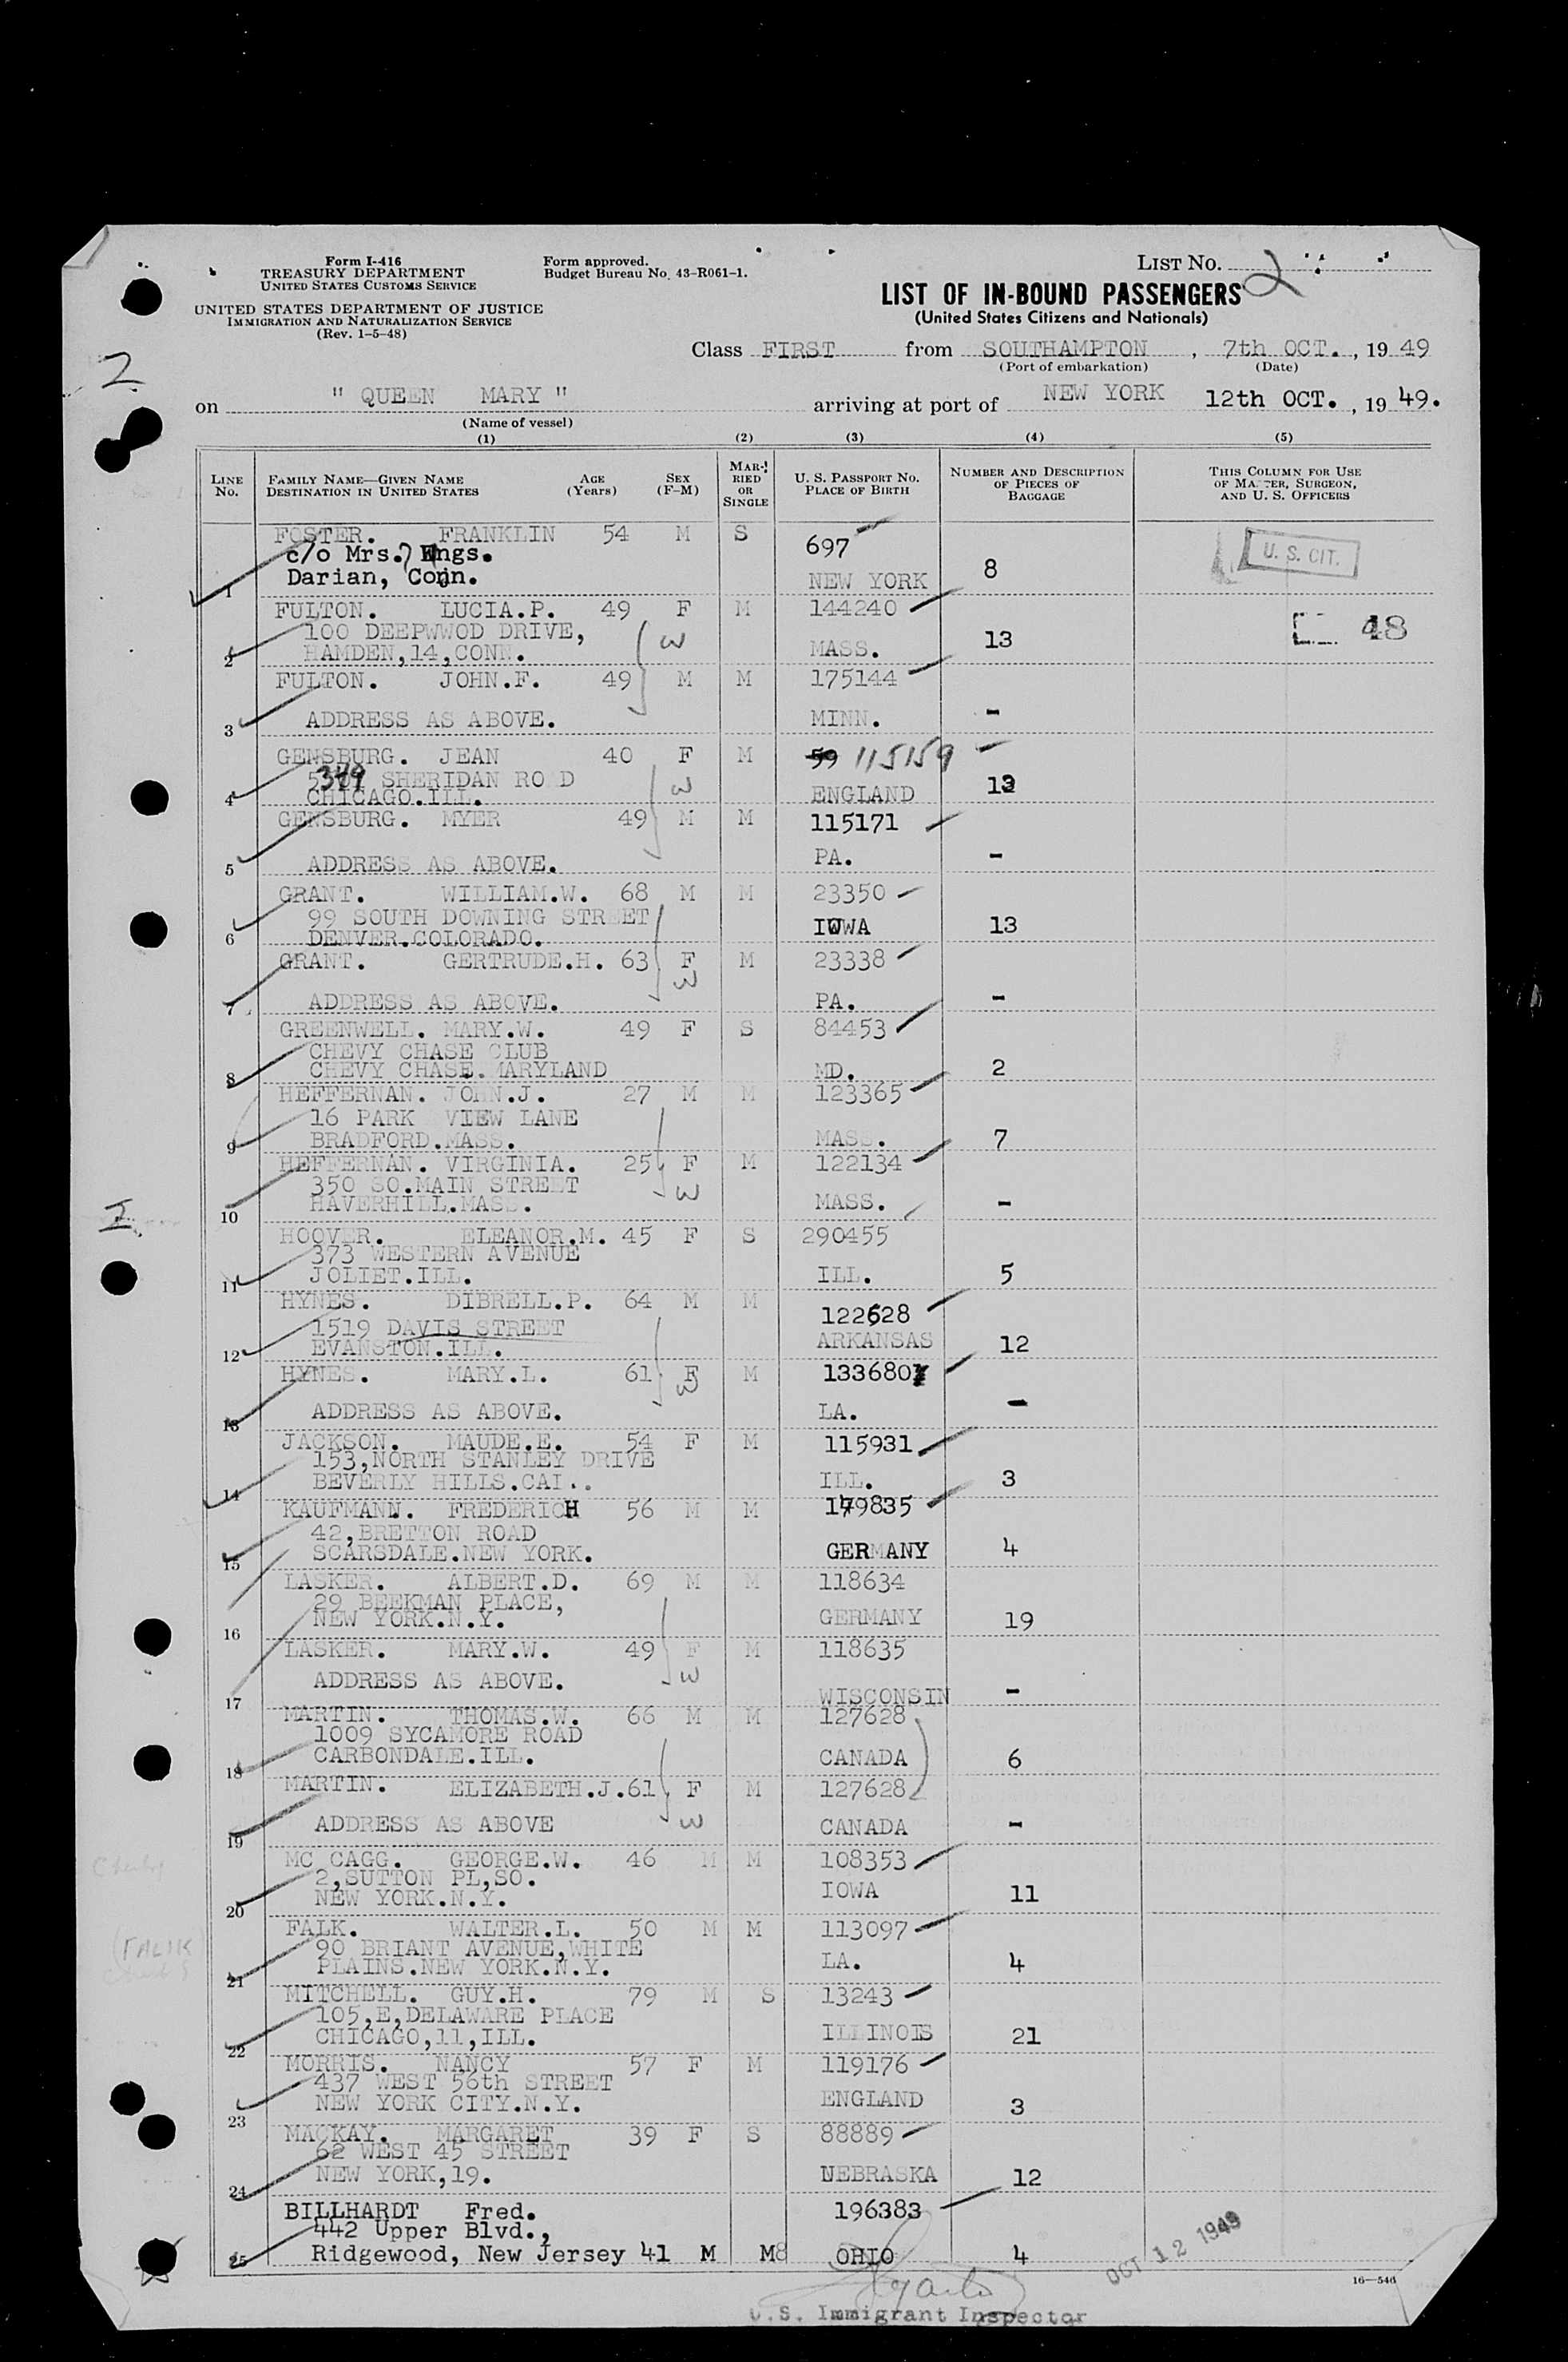 Form I-416
TREASURY DEPARTMENT
UNITED STATES CUSTOMS SERVICE
UNITED STATES DEPARTMENT OF JUSTICE
IMMIGRATION AND NATURALIZATION SERVICE
(Rev. 1-5-48)
Form approved.
Budget Bureau No. 43-R061-1.
LIST No. 2
LIST OF IN-BOUND PASSENGERS
(United States Citizens and Nationals)
Class FIRST from SOUTHAMPTON, 7th OCT., 1949
(Port of embarkation) (Date)
2
on " QUEEN MARY " arriving at port of NEW YORK 12th OCT., 1949.
(Name of vessel)
(1) (2) (3) (4) (5)
LINE No.
FAMILY NAME—GIVEN NAME
DESTINATION IN UNITED STATES
AGE (Years)
SEX (F-M)
MARRIED OR SINGLE
U. S. PASSPORT NO.
PLACE OF BIRTH
NUMBER AND DESCRIPTION OF PIECES OF BAGGAGE
THIS COLUMN FOR USE OF MASTER, SURGEON, AND U. S. OFFICERS
FOSTER. FRANKLIN 54 M S 697
c/o Mrs.
Darian, Conn. NEW YORK 8
U. S. CIT.
1
FULTON. LUCIA.P. 49 F M 144240
100 DEEPWWOD DRIVE,
2 HAMDEN,14,CONN. MASS. 13
48
FULTON. JOHN.F. 49 M M 175144
3 ADDRESS AS ABOVE. MINN. -
GENSBURG. JEAN 40 F M 59 115159
SHERIDAN ROAD
4 CHICAGO.ILL. ENGLAND 13
GENSBURG. MYER 49 M M 115171
5 ADDRESS AS ABOVE. PA. -
GRANT. WILLIAM.W. 68 M M 23350
99 SOUTH DOWNING STREET
6 DENVER.COLORADO. IOWA 13
GRANT. GERTRUDE.H. 63 F M 23338
7 ADDRESS AS ABOVE. PA. -
GREENWELL. MARY.W. 49 F S 84453
CHEVY CHASE CLUB
8 CHEVY CHASE.MARYLAND MD. 2
HEFFERNAN. JOHN.J. 27 M M 123365
16 PARK VIEW LANE
9 BRADFORD.MASS. MASS. 7
HEFFERNAN. VIRGINIA. 25 F M 122134
350 SO.MAIN STREET
10 HAVERHILL.MASS. MASS. -
HOOVER. ELEANOR.M. 45 F S 290455
373 WESTERN AVENUE
11 JOLIET.ILL. ILL. 5
HYNES. DIBRELL.P. 64 M M 122628
1519 DAVIS STREET
12 EVANSTON.ILL. ARKANSAS 12
HYNES. MARY.L. 61 F M 133680
13 ADDRESS AS ABOVE. LA. -
JACKSON. MAUDE.E. 54 F M 115931
153,NORTH STANLEY DRIVE
14 BEVERLY HILLS.CAL. ILL. 3
KAUFMANN. FREDERICH 56 M M 149835
42,BRETTON ROAD
15 SCARSDALE.NEW YORK. GERMANY 4
LASKER. ALBERT.D. 69 M M 118634
29 BEEKMAN PLACE,
16 NEW YORK.N.Y. GERMANY 19
LASKER. MARY.W. 49 F M 118635
17 ADDRESS AS ABOVE. WISCONSIN -
MARTIN. THOMAS.W. 66 M M 127628
1009 SYCAMORE ROAD
18 CARBONDALE.ILL. CANADA 6
MARTIN. ELIZABETH.J. 61 F M 127628
19 ADDRESS AS ABOVE CANADA -
MC CAGG. GEORGE.W. 46 M M 108353
2,SUTTON PL,SO.
20 NEW YORK.N.Y. IOWA 11
FALK. WALTER.L. 50 M M 113097
(FALIK
90 BRIANT AVENUE,WHITE
21 PLAINS.NEW YORK.N.Y. LA. 4
MITCHELL. GUY.H. 79 M S 13243
105,E,DELAWARE PLACE
22 CHICAGO,11,ILL. ILLINOIS 21
MORRIS. NANCY 57 F M 119176
437 WEST 56th STREET
23 NEW YORK CITY.N.Y. ENGLAND 3
MACKAY. MARGARET 39 F S 88889
62 WEST 45 STREET
24 NEW YORK,19. NEBRASKA 12
BILLHARDT Fred. 196383
442 Upper Blvd.,
25 Ridgewood, New Jersey 41 M M OHIO 4
OCT 12 1949
16—546
U.S. Immigrant Inspector